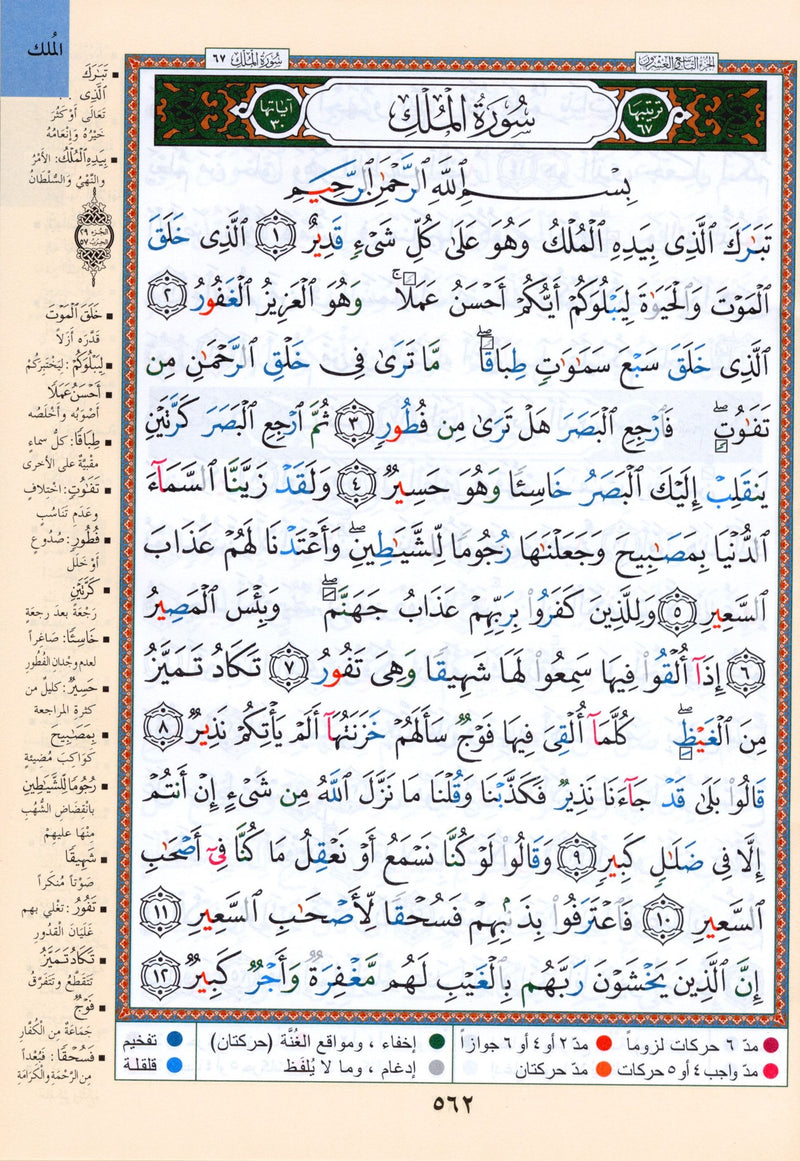 المُلك
سُورَةُ المُلْك ٦٧
الجزء التاسع والعشرون
ترتيبها ٦٧
سُورَةُ المُلْكِ
آياتها ٣٠
بِسْمِ ٱللَّهِ ٱلرَّحْمَٰنِ ٱلرَّحِيمِ
تَبَٰرَكَ ٱلَّذِى بِيَدِهِ ٱلْمُلْكُ وَهُوَ عَلَىٰ كُلِّ شَىْءٍ قَدِيرٌ ١ ٱلَّذِى خَلَقَ
ٱلْمَوْتَ وَٱلْحَيَوٰةَ لِيَبْلُوَكُمْ أَيُّكُمْ أَحْسَنُ عَمَلًا ۚ وَهُوَ ٱلْعَزِيزُ ٱلْغَفُورُ ٢
ٱلَّذِى خَلَقَ سَبْعَ سَمَٰوَٰتٍ طِبَاقًا ۖ مَّا تَرَىٰ فِى خَلْقِ ٱلرَّحْمَٰنِ مِن
تَفَٰوُتٍ ۖ فَٱرْجِعِ ٱلْبَصَرَ هَلْ تَرَىٰ مِن فُطُورٍ ٣ ثُمَّ ٱرْجِعِ ٱلْبَصَرَ كَرَّتَيْنِ
يَنقَلِبْ إِلَيْكَ ٱلْبَصَرُ خَاسِئًا وَهُوَ حَسِيرٌ ٤ وَلَقَدْ زَيَّنَّا ٱلسَّمَآءَ
ٱلدُّنْيَا بِمَصَٰبِيحَ وَجَعَلْنَٰهَا رُجُومًا لِّلشَّيَٰطِينِ ۖ وَأَعْتَدْنَا لَهُمْ عَذَابَ
ٱلسَّعِيرِ ٥ وَلِلَّذِينَ كَفَرُوا۟ بِرَبِّهِمْ عَذَابُ جَهَنَّمَ ۖ وَبِئْسَ ٱلْمَصِيرُ
٦ إِذَآ أُلْقُوا۟ فِيهَا سَمِعُوا۟ لَهَا شَهِيقًا وَهِىَ تَفُورُ ٧ تَكَادُ تَمَيَّزُ
مِنَ ٱلْغَيْظِ ۖ كُلَّمَآ أُلْقِىَ فِيهَا فَوْجٌ سَأَلَهُمْ خَزَنَتُهَآ أَلَمْ يَأْتِكُمْ نَذِيرٌ ٨
قَالُوا۟ بَلَىٰ قَدْ جَآءَنَا نَذِيرٌ فَكَذَّبْنَا وَقُلْنَا مَا نَزَّلَ ٱللَّهُ مِن شَىْءٍ إِنْ أَنتُمْ
إِلَّا فِى ضَلَٰلٍ كَبِيرٍ ٩ وَقَالُوا۟ لَوْ كُنَّا نَسْمَعُ أَوْ نَعْقِلُ مَا كُنَّا فِىٓ أَصْحَٰبِ
ٱلسَّعِيرِ ١٠ فَٱعْتَرَفُوا۟ بِذَنۢبِهِمْ فَسُحْقًا لِّأَصْحَٰبِ ٱلسَّعِيرِ ١١
إِنَّ ٱلَّذِينَ يَخْشَوْنَ رَبَّهُم بِٱلْغَيْبِ لَهُم مَّغْفِرَةٌ وَأَجْرٌ كَبِيرٌ ١٢
تَبَٰرَكَ
ٱلَّذِى ..
تَعَالَى أو كَثُرَ
خَيْرُهُ وإِنعَامُهُ
بِيَدِهِ ٱلْمُلْكُ: الأمْرُ
والنَّهْيُ والسُّلْطَانُ
الجزء ٢٩
الحزب ٥٧
خَلَقَ ٱلْمَوْتَ
قَدَّرَه أزَلاً
لِيَبْلُوَكُمْ: لِيَخْتَبِرَكُمْ
أَحْسَنُ عَمَلًا
أصْوَبُه وأخْلَصُه
طِبَاقًا: كلُّ سماءٍ
مقْبِيَّةٌ على الأخرى
تَفَٰوُتٍ: اختلافٍ
وعَدَمِ تَنَاسُبٍ
فُطُورٍ: صُدُوعٍ
أوْ خَلَلٍ
كَرَّتَيْنِ
رَجْعَةً بعدَ رجعَةٍ
خَاسِئًا: صَاغِراً
لعدم وِجْدانِ الفُطُورِ
حَسِيرٌ: كَلِيلٌ من
كثرة المراجعة
بِمَصَٰبِيحَ
كوَاكبَ مُضِيئةٍ
رُجُومًا لِّلشَّيَٰطِينِ
بانْقِضَاضِ الشُّهُبِ
منْهَا عليهِمْ
شَهِيقًا
صَوْتاً مُنكَراً
تَفُورُ: تغْلي بهم
غَلَيَانَ القُدورِ
تَكَادُ تَمَيَّزُ
تَتَقطَّعُ وتَتَفرَّقُ
فَوْجٌ
جَمَاعَةٌ مِن الكُفَّارِ
فَسُحْقًا: فَبُعْداً
مِن الرَّحْمَةِ والْكَرَامَةِ
مدّ ٦ حركات لزوماً
مدّ ٢ أو ٤ أو ٦ جوازاً
إخفاء ، ومواقع الغُنَّة (حركتان)
تفخيم
مدّ واجب ٤ أو ٥ حركات
مدّ حركتان
إدغام ، وما لا يُلفَظ
قلقلة
٥٦٢